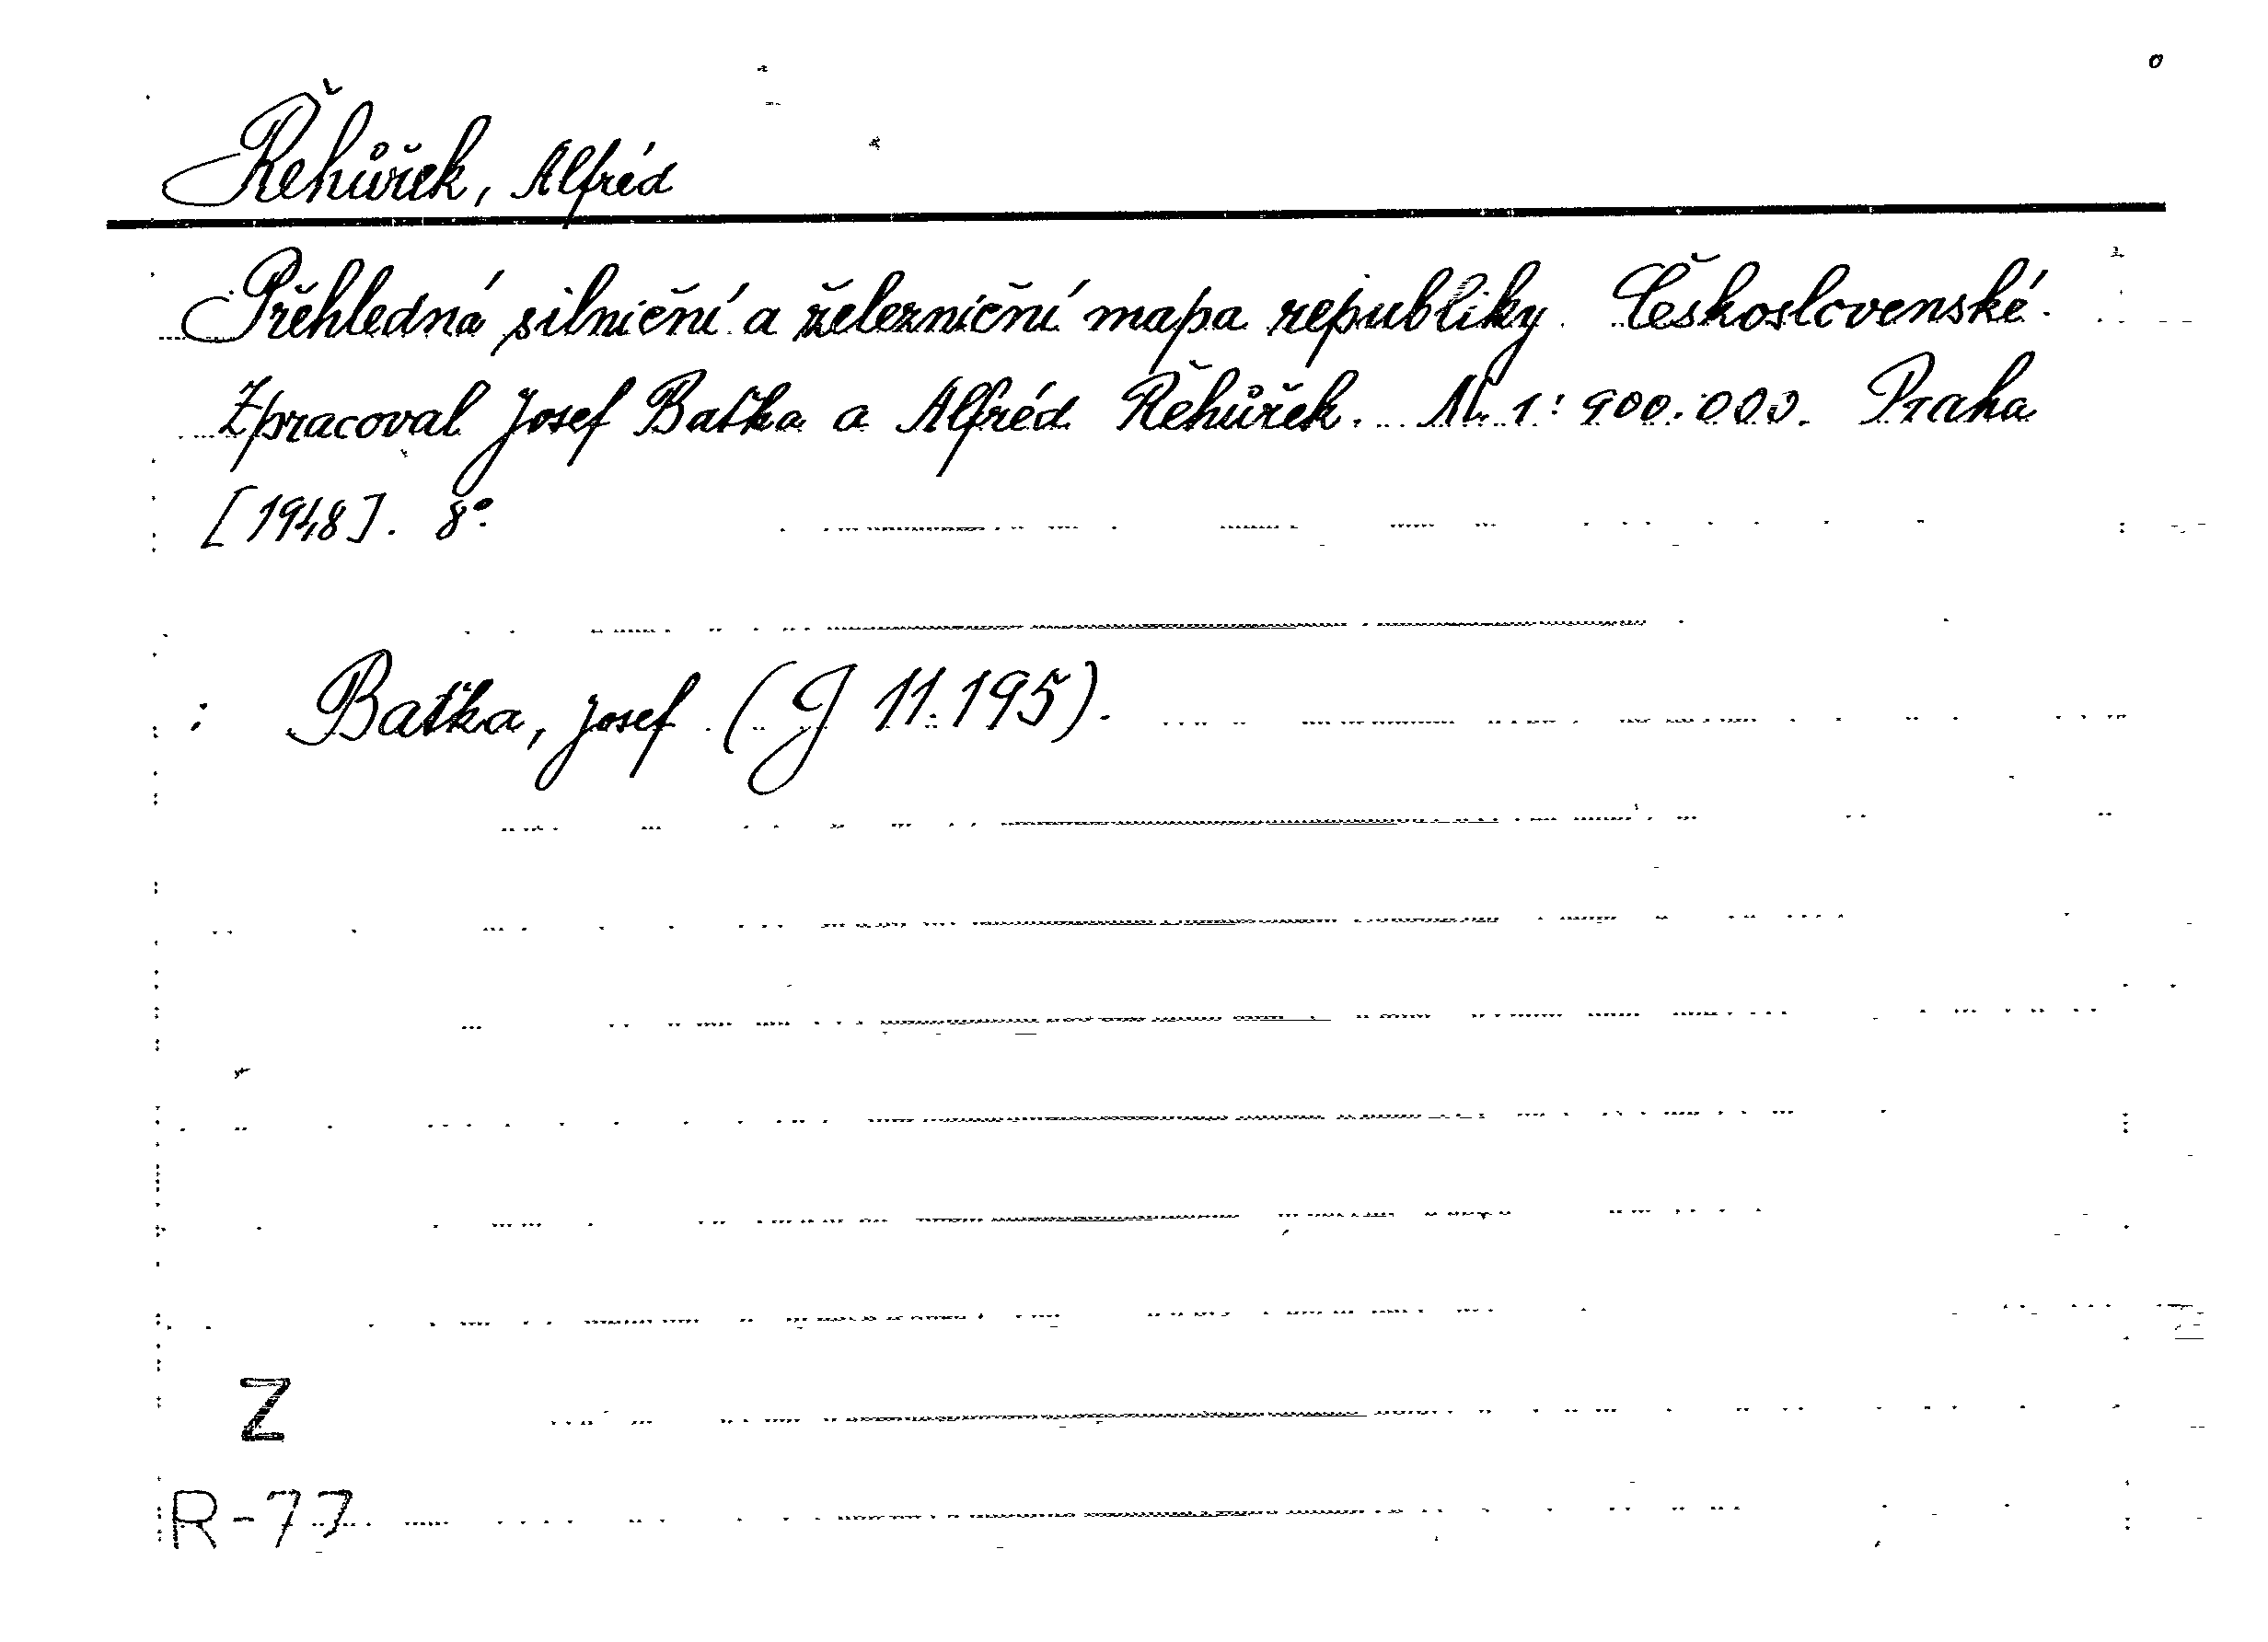 Řehůřek, Alfréd
Přehledná silniční a železniční mapa republiky Československé.
Zpracoval Josef Baťka a Alfréd Řehůřek. M. 1:900.000. Praha
[1948]. 8°.
: Baťka, Josef (J 11.195).
Z
R-77